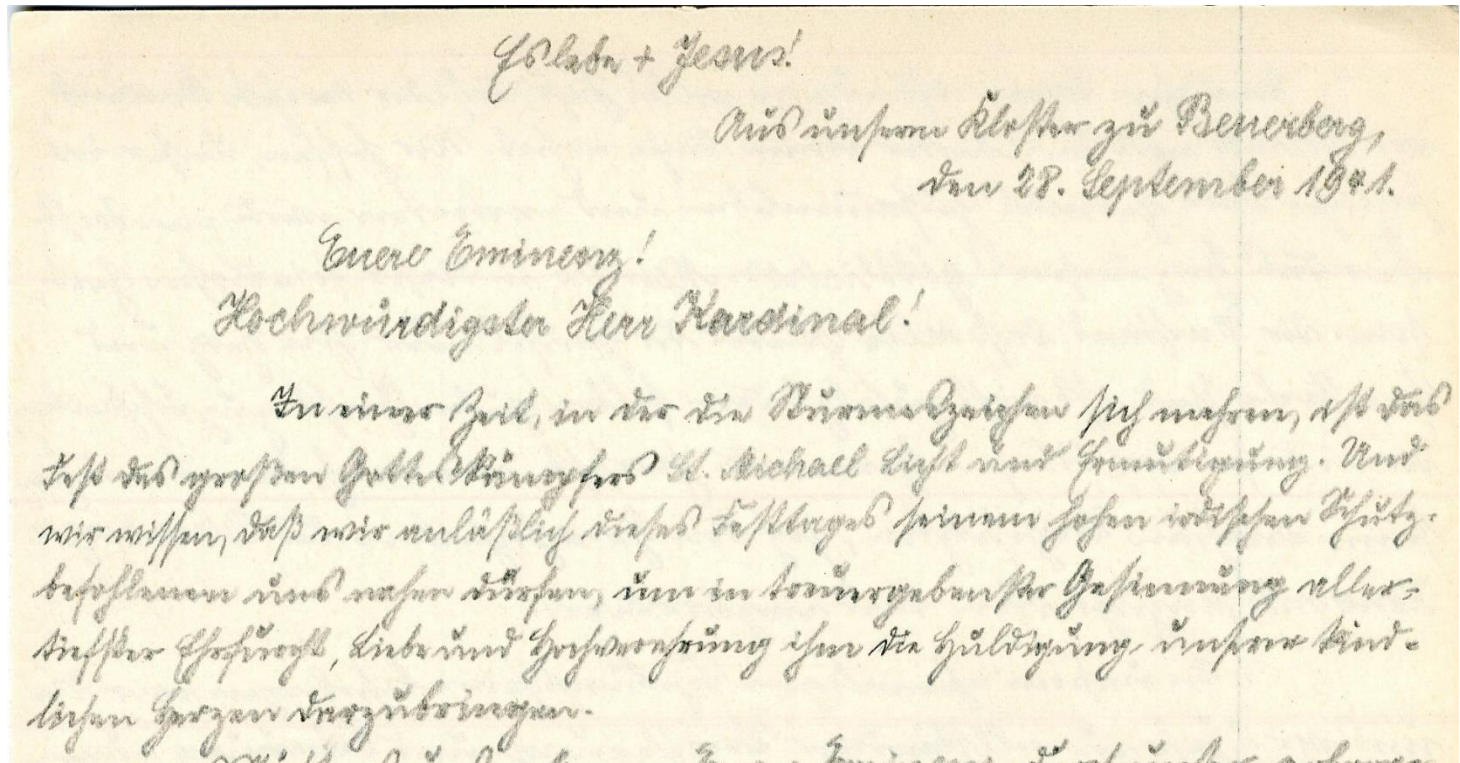 Es lebe + Jesus!
Aus unserm Kloster zu Beuerberg,
den 28. September 1941.
Euere Eminenz!
Hochwürdigster Herr Kardinal!
In einer Zeit, in der die Sturmeszeichen sich mehren, ist das
Fest des großen Gotteskämpfers St. Michael Licht und Ermutigung. Und
wir wissen, daß wir anläßlich dieses Festtages seinem hohen irdischen Schutz-
befohlenen uns nahen dürfen, um in treuergebenster Gesinnung aller-
tiefster Ehrfurcht, Liebe und Hochverehrung ihm die Huldigung unserer kind-
lichen Herzen darzubringen.